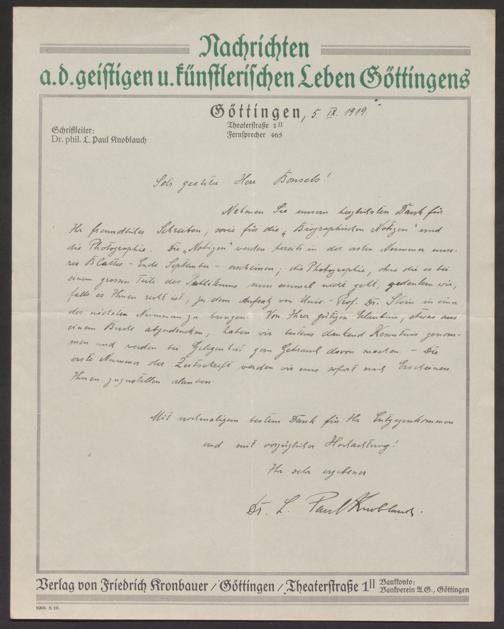 Nachrichten
a.d.geistigen u.künstlerischen Leben Göttingens
Göttingen, 5. IX. 1919
Theaterstraße 1 II
Fernsprecher 465
Schriftleiter:
Dr. phil. L. Paul Knoblauch
Sehr geehrter Herr Bonsels!
Nehmen Sie unsern herzlichsten Dank für
Ihr freundliches Schreiben, sowie für die „Biographischen Notizen" und
die Photographie. Die „Notizen" werden bereits in der ersten Nummer unse-
res Blattes - Ende September - erscheinen, die Photographie, ohne die es bei
einem grossen Teile des Publikums nun einmal nicht geht, gedenken wir,
falls es Ihnen recht ist, zu dem Aufsatz von Univ.-Prof. Dr. Stein in eine
der nächsten Nummern zu bringen. Von Ihrer gütigen Erlaubnis, etwas aus
einem Buche abzudrucken, haben wir bestens dankend Kenntnis genom-
men und werden bei Gelegenheit gern Gebrauch davon machen - Die
erste Nummer der Zeitschrift werden wir uns sofort nach Erscheinen
Ihnen zuzustellen erlauben.
Mit nochmaligem bestem Dank für Ihr Entgegenkommen
und mit vorzüglicher Hochachtung!
Ihr sehr ergebener
Dr. L. Paul Knoblauch.
Verlag von Friedrich Kronbauer / Göttingen / Theaterstraße 1 II
Bankkonto:
Bankverein A.G., Göttingen